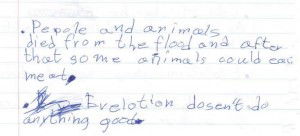 . Pepole and animals
died from the flood and after
that some animals could eat
meat.
. Evelotion dosen't do
anything good